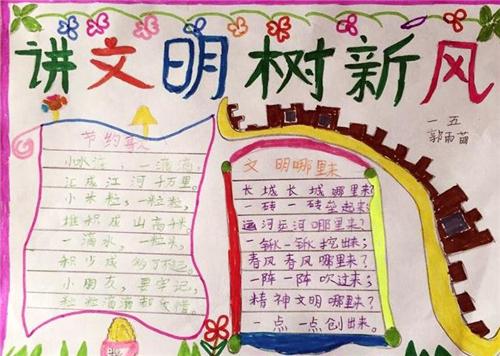 讲文明树新风
一五
郭雨苗
节约歌
小水滴，一滴滴，
汇成江河千万里。
小米粒，一粒粒，
堆积成山高千米。
一滴水，一粒米，
积少成多了不起。
小朋友，要牢记，
粒粒滴滴都珍惜。
文明哪里来
长城长城哪里来？
一砖一砖垒起来；
运河运河哪里来？
一锹一锹挖出来；
春风春风哪里来？
一阵一阵吹过来；
精神文明哪里来？
一点一点创出来。